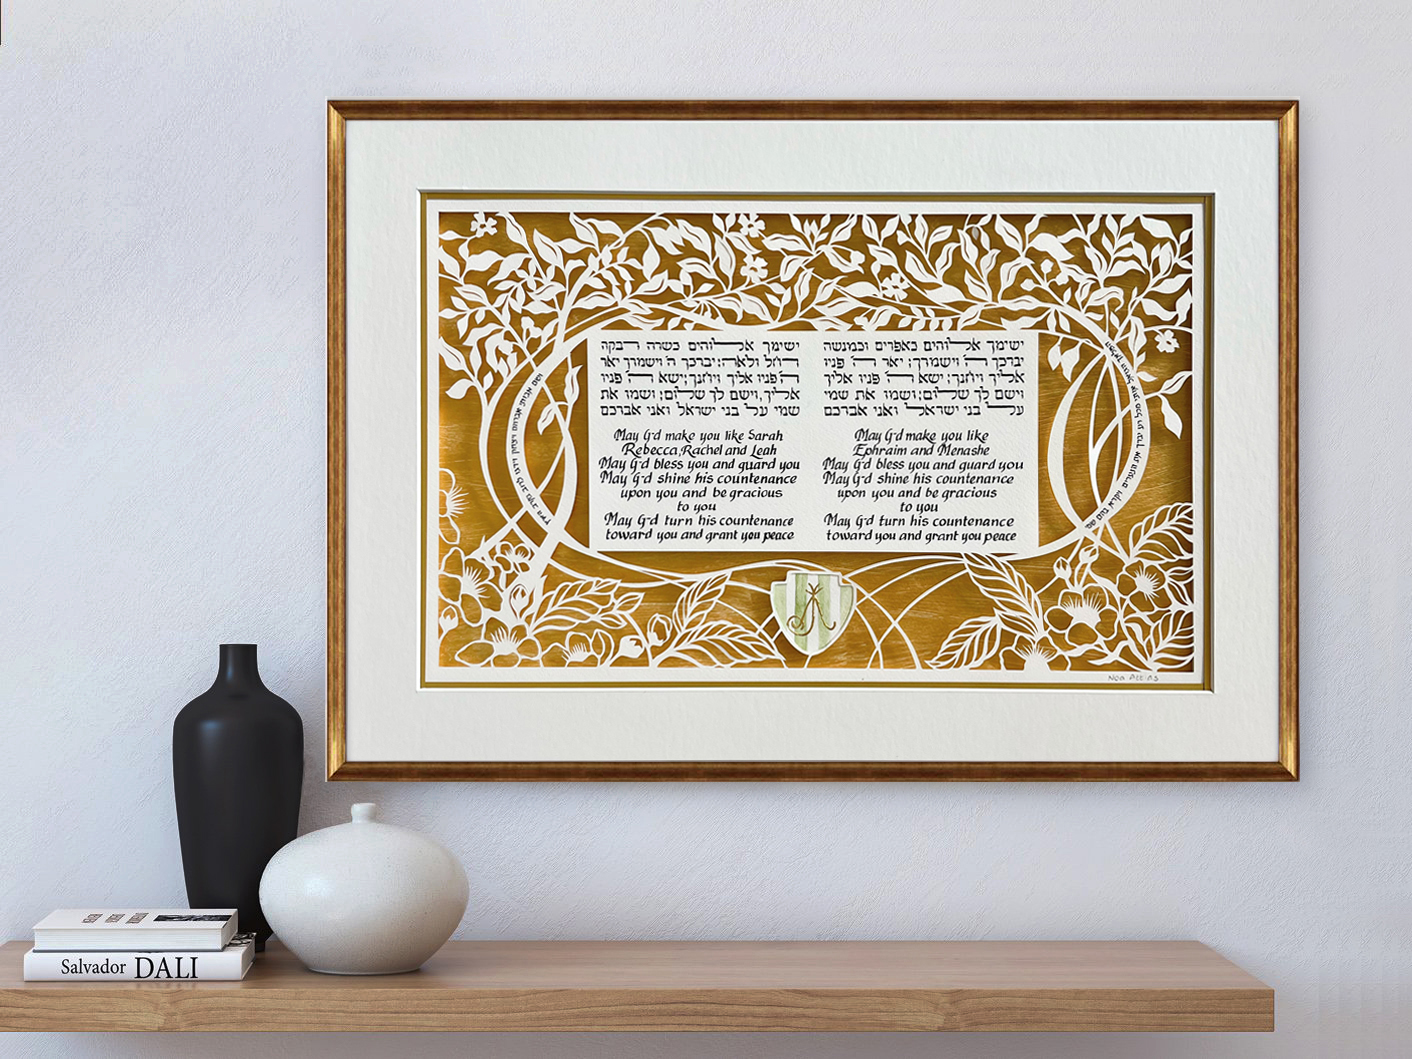 ישימך אלוהים כשרה רבקה
רחל ולאה; יברכך ה' וישמרך יאר
ה' פניו אליך ויחנך; ישא ה' פניו
אליך, וישם לך שלום; ושמו את
שמי על בני ישראל ואני אברכם
May G-d make you like Sarah
Rebecca, Rachel and Leah
May G-d bless you and guard you
May G-d shine his countenance
upon you and be gracious
to you
May G-d turn his countenance
toward you and grant you peace
ישימך אלוהים כאפרים וכמנשה
יברכך ה' וישמרך; יאר ה' פניו
אליך ויחנך; ישא ה' פניו אליך
וישם לך שלום; ושמו את שמי
על בני ישראל ואני אברכם
May G-d make you like
Ephraim and Menashe
May G-d bless you and guard you
May G-d shine his countenance
upon you and be gracious
to you
May G-d turn his countenance
toward you and grant you peace
המלאך הגואל אותי מכל רע יברך את הנערים ויקרא בהם שמי
ושם אבותי אברהם ויצחק וידגו לרב בקרב הארץ
A
Noa Attias
Salvador DALI